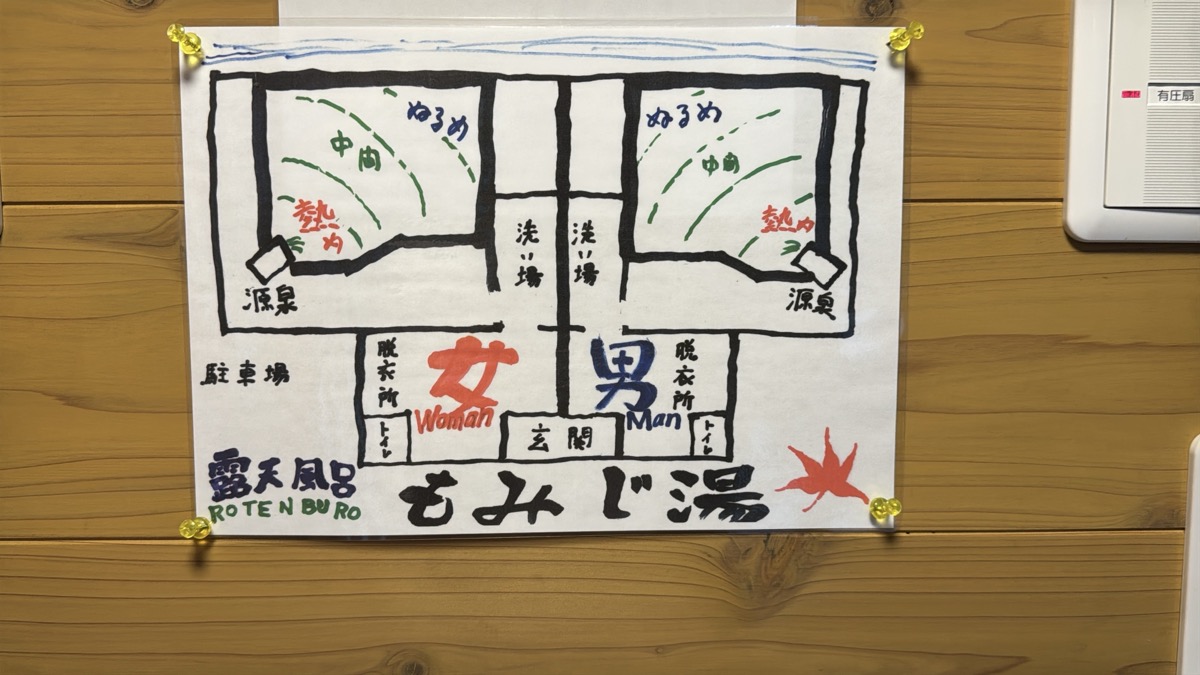 有圧扇
ぬるめ
ぬるめ
中間
中間
熱め
熱め
洗い場
洗い場
源泉
源泉
駐車場
脱衣所
女
Woman
男
Man
脱衣所
トイレ
玄関
トイレ
露天風呂
ROTENBURO
もみじ湯